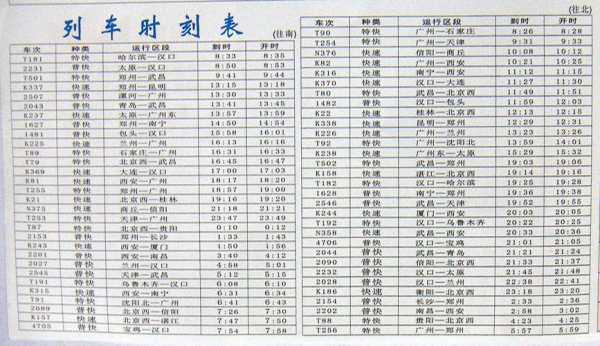 列车时刻表
(往南)
车次 种类 运行区段 到时 开时
T181 特快 哈尔滨—汉口 8:33 8:35
2231 普快 太原—汉口 8:50 8:53
T501 特快 郑州—武昌 9:41 9:44
K337 快速 郑州—昆明 13:15 13:18
2507 普快 漯河—广州 13:30 13:33
2043 普快 青岛—武昌 13:41 13:45
K237 快速 太原—广州东 13:57 13:59
1627 普快 郑州—南宁 14:50 14:54
1481 普快 包头—汉口 15:58 16:01
K225 快速 兰州—广州 16:13 16:16
T89 特快 石家庄—广州 16:31 16:33
T79 特快 北京西—武昌 16:45 16:47
K369 快速 大连—汉口 17:00 17:03
K81 快速 西安—广州 18:17 18:20
T255 特快 郑州—广州 18:57 19:00
K21 快速 北京西—桂林 19:16 19:20
N375 快速 商丘—信阳 21:18 21:21
T253 特快 天津—广州 23:47 23:49
T87 特快 北京西—贵阳 0:10 0:12
2153 普快 郑州—长沙 1:33 1:43
K243 快速 西安—厦门 1:50 1:56
2201 普快 西安—南昌 3:40 4:12
2027 普快 兰州—汉口 4:58 5:01
2545 普快 天津—武昌 5:12 5:15
T191 特快 乌鲁木齐—汉口 6:08 6:10
K315 快速 西安—南宁 6:31 6:34
T91 特快 沈阳北—广州 6:41 6:43
2089 普快 北京西—信阳 7:26 7:30
K157 快速 北京西—湛江 7:47 7:50
4705 普快 宝鸡—汉口 7:54 7:58
(往北)
车次 种类 运行区段 到时 开时
T90 特快 广州—石家庄 8:26 8:28
T254 特快 广州—天津 9:31 9:33
N376 快速 信阳—商丘 10:08 10:12
K82 快速 广州—西安 10:21 10:25
K316 快速 南宁—西安 11:12 11:15
K370 快速 汉口—大连 11:27 11:30
T80 特快 武昌—北京西 11:49 11:51
1482 普快 汉口—包头 11:59 12:03
K22 快速 桂林—北京西 12:10 12:13
K338 快速 昆明—郑州 12:29 12:31
K226 快速 广州—兰州 13:23 13:26
T92 特快 广州—沈阳北 13:59 14:01
K238 快速 广州东—太原 15:29 15:32
T502 特快 武昌—郑州 19:03 19:06
K158 快速 湛江—北京西 19:14 19:16
T182 特快 汉口—哈尔滨 19:25 19:28
1628 普快 南宁—郑州 19:36 19:38
2546 普快 武昌—天津 19:52 19:55
K244 快速 厦门—西安 20:03 20:05
T192 特快 汉口—乌鲁木齐 20:22 20:25
N358 快速 武昌—西安 20:33 20:36
4706 普快 汉口—宝鸡 21:01 21:05
2044 普快 武昌—青岛 21:21 21:24
2090 普快 信阳—北京西 21:33 21:37
2232 普快 汉口—太原 21:45 21:48
2028 普快 汉口—兰州 22:38 22:41
K186 快速 衡阳—北京西 23:18 23:20
2154 普快 长沙—郑州 2:33 2:36
2202 普快 南昌—西安 2:58 3:02
T88 特快 贵阳—北京西 4:23 4:25
T256 特快 广州—郑州 5:57 5:59